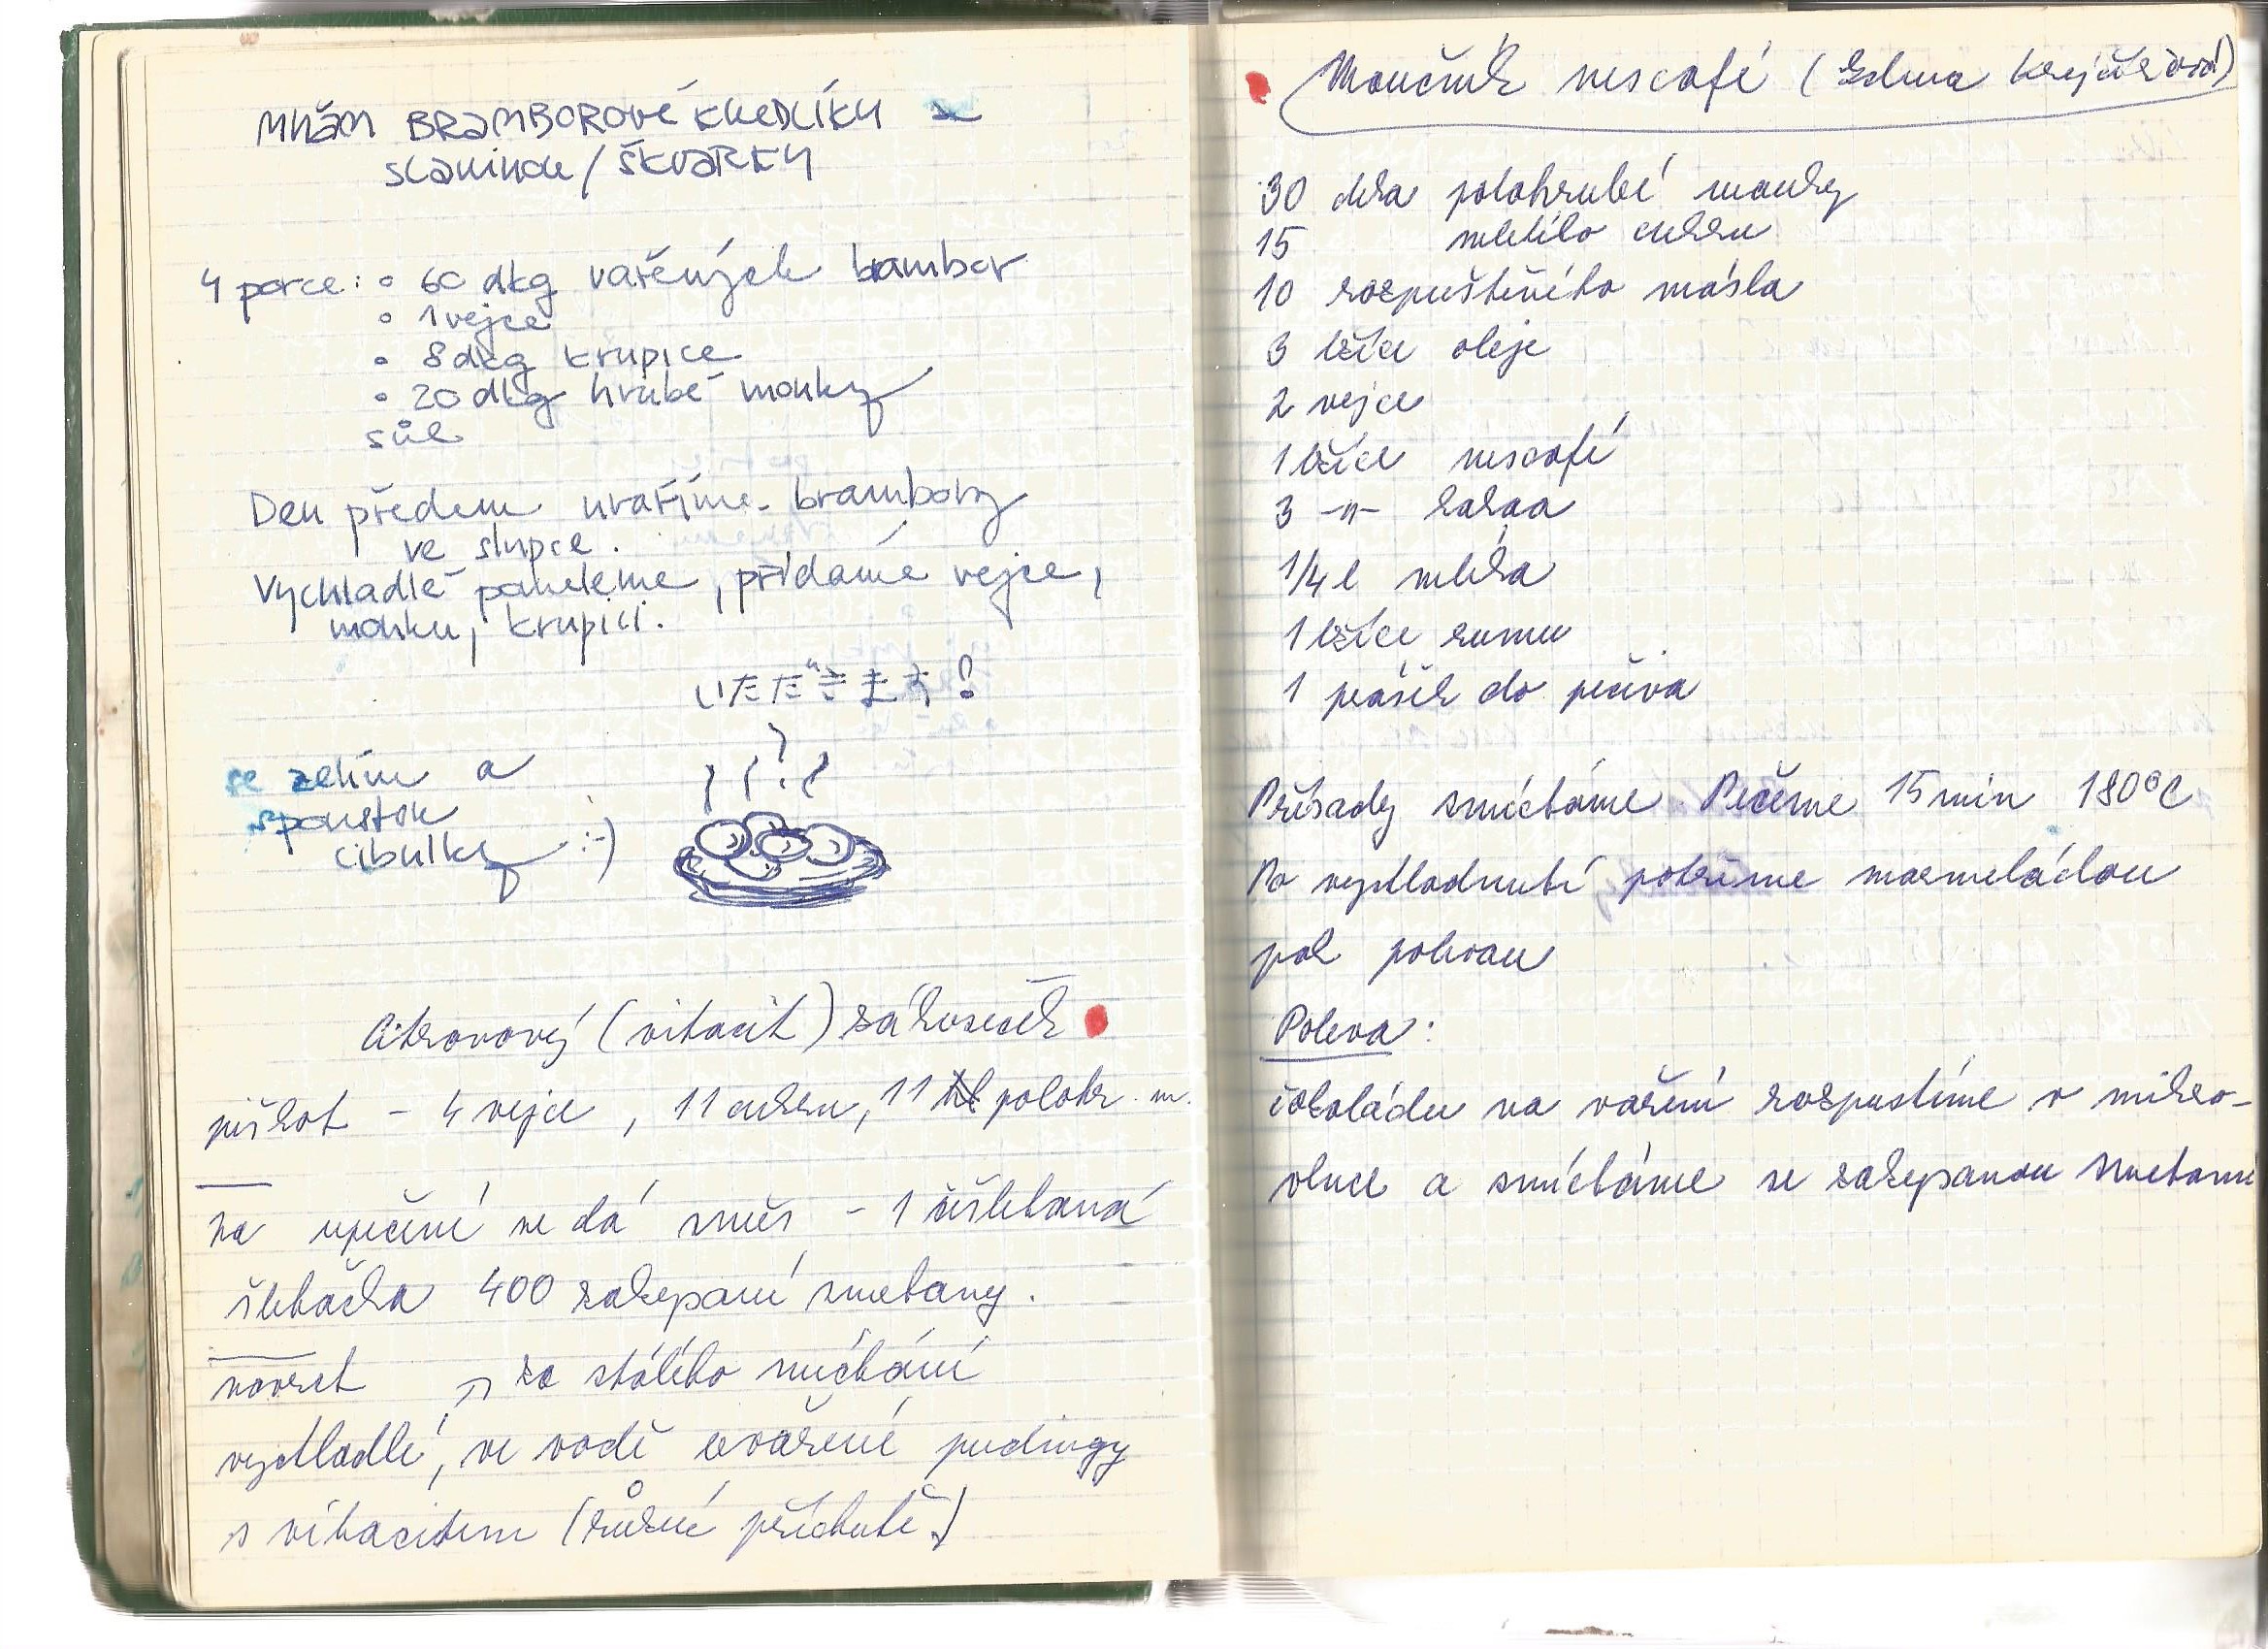 MŇAM BRAMBOROVÉ KNEDLÍKY se
slaninou / ŠKVARKY
4 porce: • 60 dkg vařených brambor
• 1 vejce
• 8 dkg krupice
• 20 dkg hrubé mouky
sůl
Den předem uvaříme brambory
ve slupce.
Vychladlé pomeleme, přidáme vejce,
mouku, krupici.
いただきます!
se zelím a
spoustou
cibulky :-)
Citronový (vitacit) zákuseček
piškot - 4 vejce, 11 cukru, 11 polohr. m.
na upečené se dá směs - 1 ušlehaná
šlehačka 400 zakysané smetany.
navrch za stálého míchání
vychladlé, ve vodě uvařené pudingy
s vitacitem (různé příchutě)
Moučník nescafé (Zdena Krejčíková)
30 dka polohrubé mouky
15 mletého cukru
10 rozpuštěného másla
3 lžíce oleje
2 vejce
1 lžíce nescafé
3 -"- kakaa
1/4 l mléka
1 lžíce rumu
1 prášek do pečiva
Přísady smícháme. Pečeme 15 min 180°C
Po vychladnutí potřeme marmeládou
pak polevou
Poleva:
čokoládu na vaření rozpustíme v mikro-
vlnce a smícháme se zakysanou smetanou